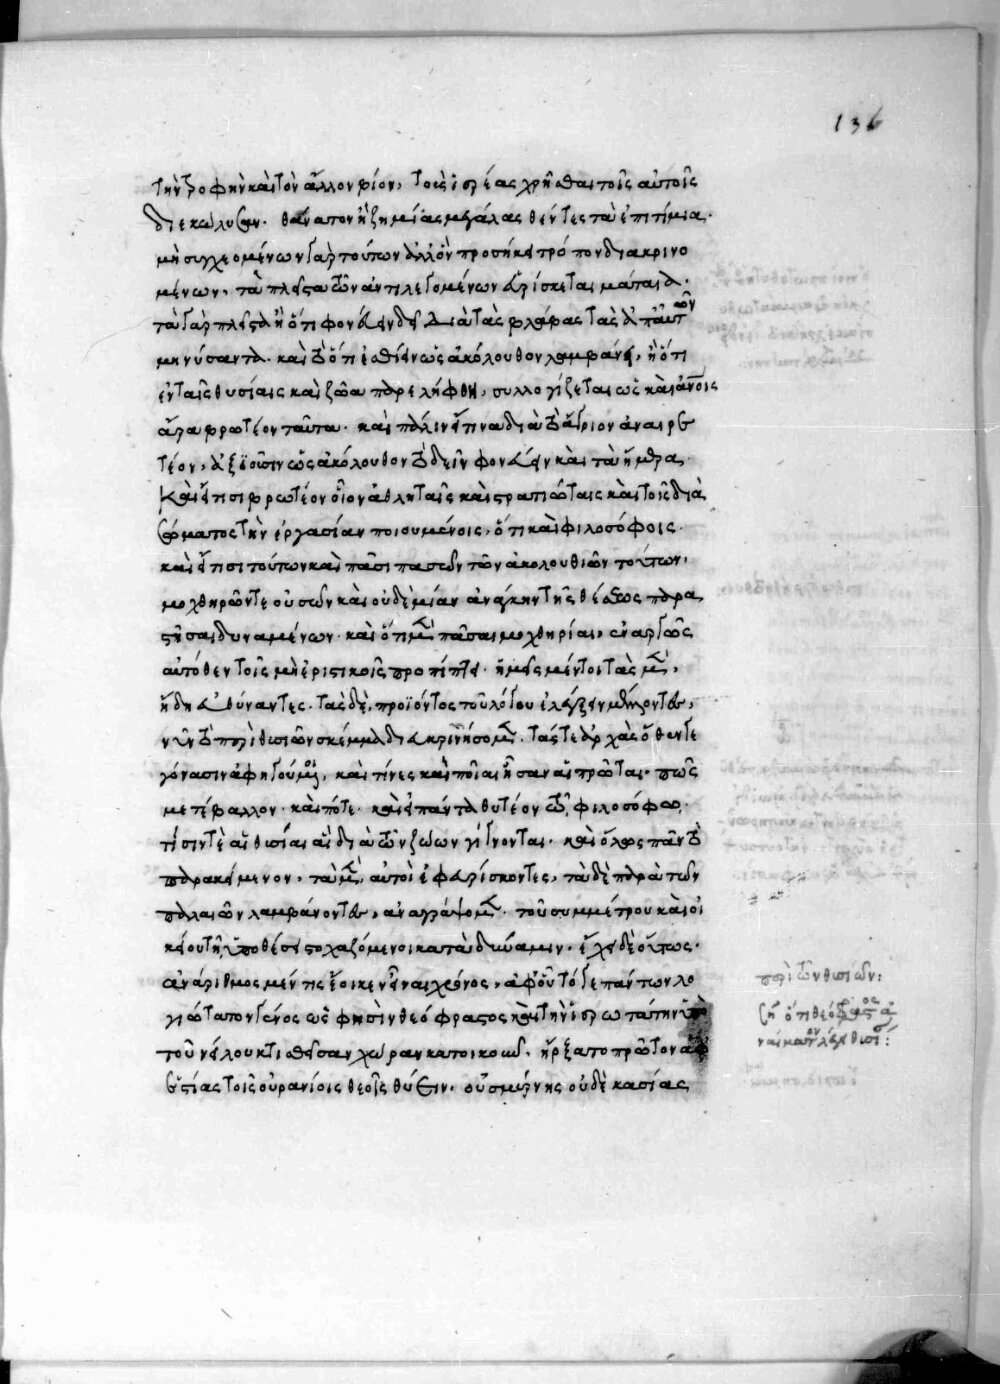 136
τὴν τροφὴν καὶ τὸν ἄλλον βίον, τοὺς ἱερέας χρῆσθαι τοῖς αὐτοῖς
διεκώλυσαν. θάνατον ἢ ζημίας μεγάλας θέντες τὰ ἐπιτίμια.
μὴ συγχεομένων γὰρ τούτων ἀλλ' ὃν προσῆκε τρόπον διακρινο
μένων, τὰ πλεῖστα τῶν ἀντιλεγομένων εὑρίσκεται μάταια.
τὰ γὰρ πλεῖστα ἢ ὅτι φονεύειν δεῖ διὰ τὰς βλάβας τὰς ἀπ' αὐτῶν
μηνύσαντα. καὶ τὸ ὅτι ἐσθίειν ὡς ἀκόλουθον λαμβάνει, ἢ ὅτι
ἐν ταῖς θυσίαις καὶ ζῶα παρελήφθη, συλλογίζεται ὡς καὶ ἀνοις
ἄρα βρωτέον ταῦτα. καὶ πάλιν εἴ τινα διὰ τὸ ἄγριον ἀναιρε
τέον, ἀξιοῦσιν ὡς ἀκόλουθον τὸ δεῖν φονεύειν καὶ τὰ ἥμερα.
καὶ εἴ τισι βρωτέον οἷον ἀθληταῖς καὶ στρατιώταις καὶ τοῖς διὰ
σώματος τὴν ἐργασίαν ποιουμένοις, ὅτι καὶ φιλοσόφοις.
καὶ εἴ τισι τούτων καὶ πᾶσι πασῶν τῶν ἀκολουθιῶν τούτων,
μοχθηρῶν τε οὐσῶν καὶ οὐδεμίαν ἀνάγκην τῆς θέσεως παρα
στῆσαι δυναμένων. καὶ ὅτι μὲν πᾶσαι μοχθηραί, ἐναργῶς
αὐτόθεν τοῖς μὴ ἐριστικοῖς προπίπτει. ἡμεῖς μέντοι τὰς μὲν,
ἤδη εὐθύναντες. τὰς δὲ, προϊόντος τοῦ λόγου ἐλέγξειν μέλλοντες,
νῦν τὸ περὶ θυσιῶν σκέμμα διευκρινήσομεν. τάς τε ἀρχὰς ὅθεν γε
γόνασιν ἀφηγούμενοι, καὶ τίνες καὶ ποῖαι ἦσαν αἱ πρῶται. πῶς
μετέβαλλον. καὶ πότε. καὶ εἰ πάντα θυτέον τῷ φιλοσόφῳ.
τίσιν τε αἱ θυσίαι αἱ διὰ τῶν ζώων γίγνονται. καὶ ὅλως πᾶν τὸ
παρακείμενον. τὰ μὲν, αὐτοὶ ἐφευρίσκοντες, τὰ δὲ παρὰ τῶν
παλαιῶν λαμβάνοντες, ἀναγράψομεν. τοῦ συμμέτρου καὶ οἰ
κείου τῇ ὑποθέσει στοχαζόμενοι κατὰ δύναμιν. ἔχει δὲ οὕτως.
ἀνάριθμος μέν τις ἔοικεν εἶναι χρόνος, ἀφ' οὗ τό γε πάντων λο
γιώτατον γένος ὥς φησὶν θεόφραστος καὶ τὴν ἱερωτάτην ὑπὸ
τοῦ νείλου κτισθεῖσαν χώραν κατοικοῦν, ἤρξατο πρῶτον ἀφ'
ἑστίας τοῖς οὐρανίοις θεοῖς θύειν. οὐ σμύρνης οὐδὲ κασίας
περὶ τῶν θυσιῶν: